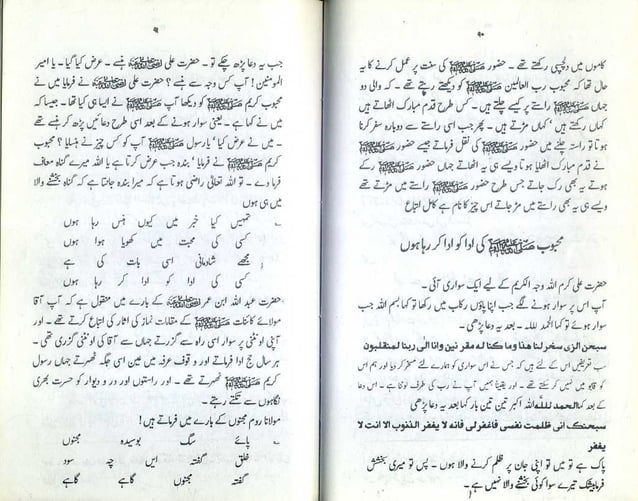 ۱۰
کاموں میں دلچسپی رکھتے تھے۔ حضور ﷺ کی سنت پر عمل کرنے کا یہ
حال تھا کہ محبوب رب العالمین ﷺ کو دیکھتے رہتے تھے۔ کہ والی دو
جہاں ﷺ راستے پر کیسے چلتے ہیں۔ کس طرح قدم مبارک اٹھاتے ہیں
کہاں رکھتے ہیں' کہاں مڑتے ہیں۔ پھر جب اسی راستے سے دوبارہ سفر کرنا
ہوتا تو راستہ چلنے میں حضور ﷺ کی نقل فرماتے جیسے حضور ﷺ
نے قدم مبارک اٹھایا ہوتا ویسے ہی یہ اٹھاتے جہاں حضور ﷺ رکے
ہوتے یہ بھی رک جاتے جس طرح حضور ﷺ راستے میں مڑتے تھے
ویسے ہی یہ بھی راستے میں مڑ جاتے اس چیز کا نام ہے کامل اتباع
محبوب ﷺ کی ادا کو ادا کر رہا ہوں
حضرت علی کرم اللہ وجہ الکریم کے لیے ایک سواری آئی۔
آپ اس پر سوار ہونے لگے جب اپنا پاؤں رکاب میں رکھا تو کہا بسم اللہ جب
سوار ہوئے تو کہا الحمد للہ۔ بعد یہ دعا پڑھی۔
سبحن الزی سخرلنا ھذا وما کنا له مقرنین وانا الی ربنا لمنقلبون
سب تعریفیں اس کے لئے ہیں کہ جس نے اس سواری کو ہمارے لئے مسخر کر دیا اور ہم اس
کو قابو میں نہیں کر سکتے تھے۔ اور یقیناً ہمیں آپ نے رب کی طرف لوٹنا ہے۔ اس دعا
کے بعد کہا الحمد للہ اللہ اکبر تین تین بار کہا بعد یہ دعا پڑھی
سبحنک انی ظلمت نفسی فاغفرلی فانه لا یغفر الذنوب الا انت لا
یغفر
پاک ہے تو میں تو اپنی جان پر ظلم کرنے والا ہوں۔ پس تو میری بخشش
فرما بیشک تیرے سوا کوئی بخشنے والا نہیں ہے۔
۹
جب یہ دعا پڑھ چکے تو۔ حضرت علی ہنسے۔ عرض کیا گیا۔ یا امیر
المومنین! آپ کس وجہ سے ہنسے؟ حضرت علی نے فرمایا میں نے
محبوب کریم ﷺ کو دیکھا آپ ﷺ نے ایسا ہی کیا تھا۔ جیسا کہ
میں نے کہا ہے۔ یعنی سوار ہونے کے بعد اسی طرح دعائیں پڑھ کر ہنسے تھے
۔ میں نے عرض کیا' یارسول ﷺ آپ کو کس چیز نے ہنسایا؟ محبوب
کریم ﷺ نے فرمایا' بندہ جب عرض کرتا ہے یا اللہ میرے گناہ معاف
فرما دے۔ تو اللہ تعالیٰ راضی ہوتا ہے کہ میرا بندہ جانتا ہے کہ گناہ بخشنے والا
میں ہی ہوں
تمہیں کیا خبر میں کیوں ہنس رہا ہوں
کسی کی محبت میں کھویا ہوا ہوں
مجھے شادمانی اسی بات کی ہے
کسی کی ادا کو ادا کر رہا ہوں
حضرت عبد اللہ ابن عمر کے بارے میں منقول ہے کہ آپ آقا
مولائے کائنات ﷺ کے مقامات نماز کی اثار کی اتباع کرتے تھے۔ اور
آپنی اونٹنی پر سوار اسی راہ سے گزرتے جہاں سے آقا کی اونٹنی گزری تھی۔
ہر سال حج ادا فرماتے اور و قوف عرفہ میں عین اسی جگہ ٹھہرتے جہاں رسول
کریم ﷺ ٹھہرتے تھے۔ اور راستوں اور در و دیوار کو حسرت بھری
نگاہوں سے تکتے رہتے۔
مولانا روم مجنوں کے بارے میں فرماتے ہیں!
پائے سگ بوسیدہ مجنوں
خلق گفتہ ایں چہ سود
گفتہ مجنوں گاہے گاہے